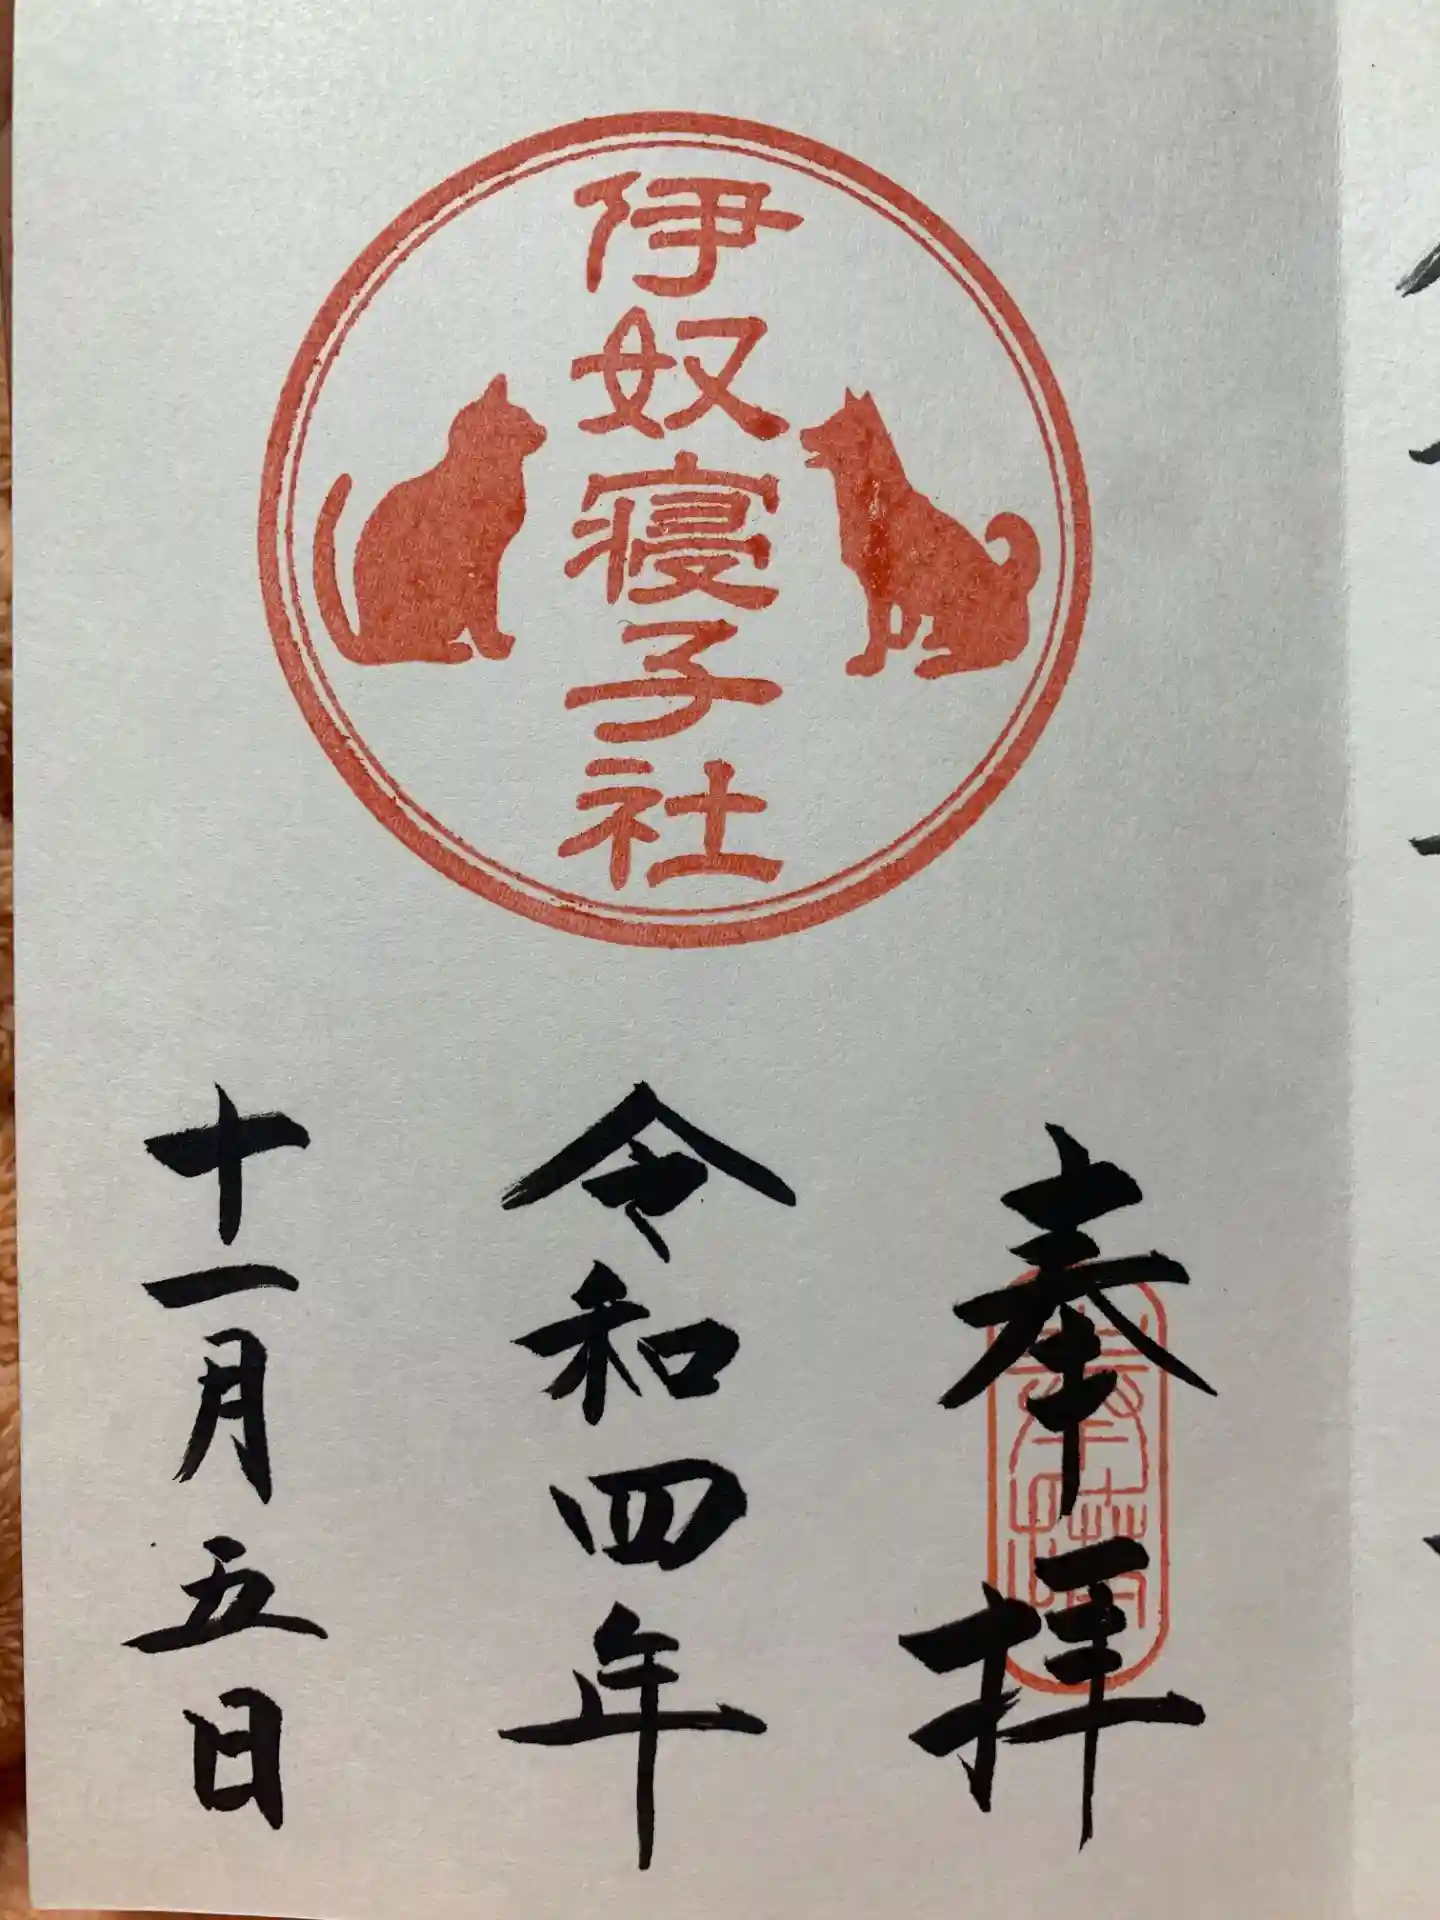 伊奴寝子社
奉拝
奉拝
令和四年
十一月五日